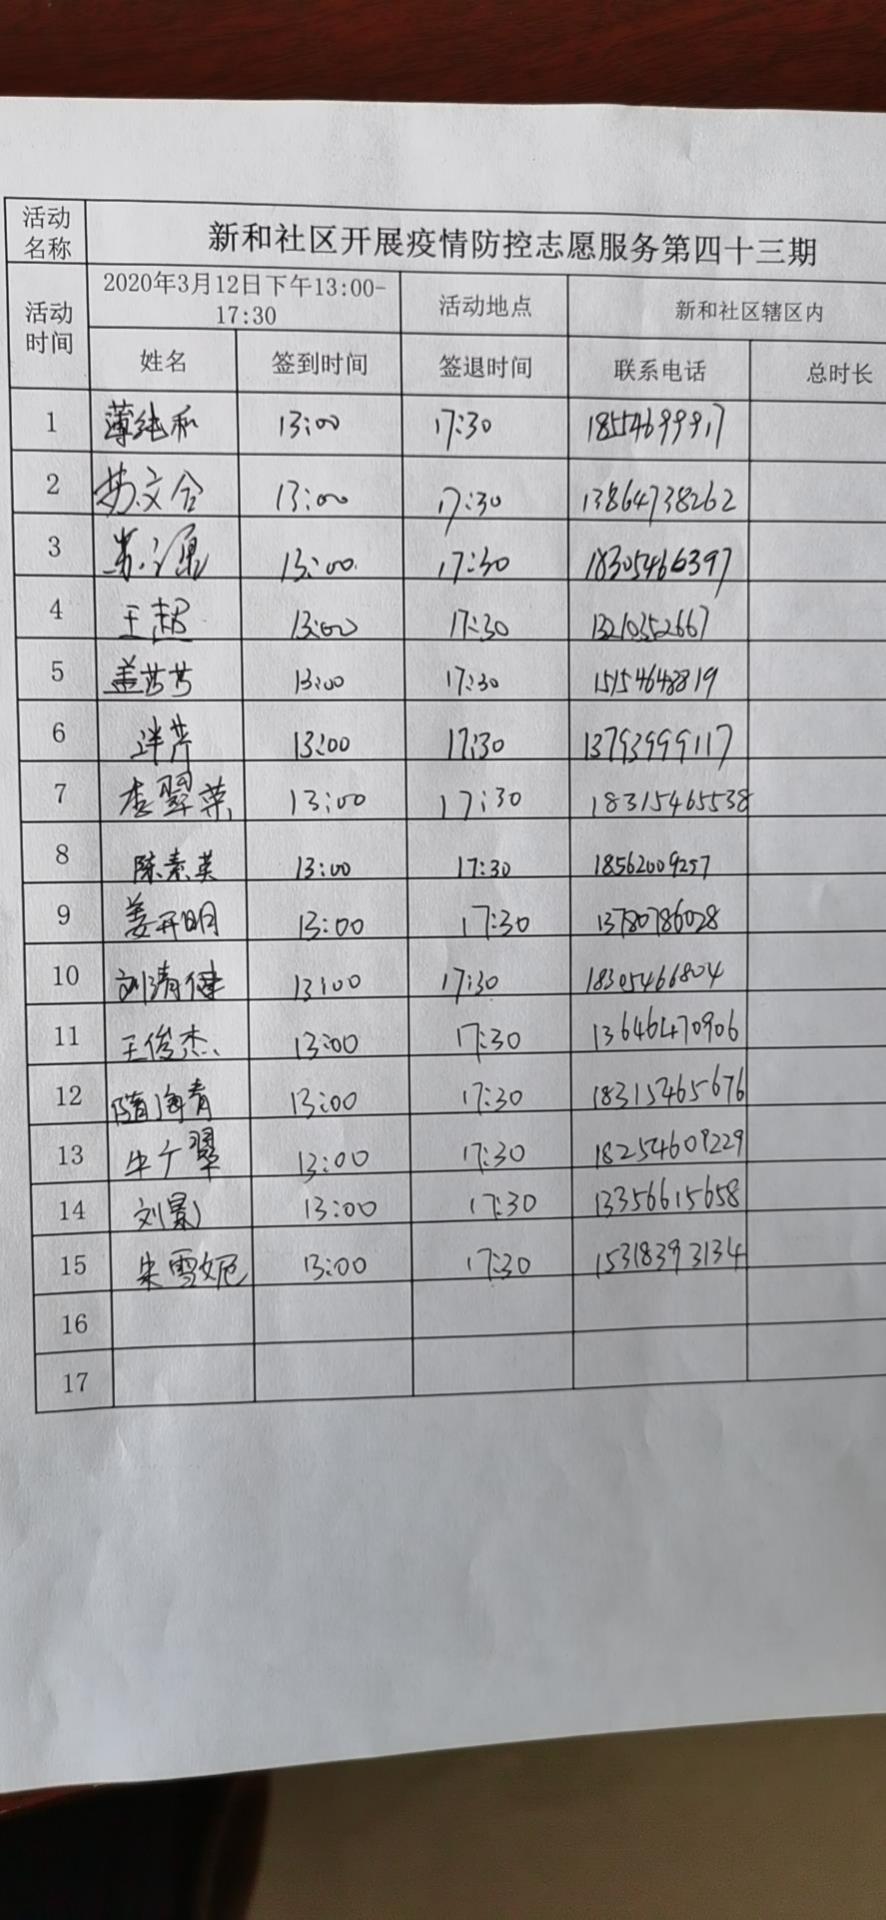 活动名称 新和社区开展疫情防控志愿服务第四十三期
活动时间 2020年3月12日下午13:00-17:30 活动地点 新和社区辖区内
姓名 签到时间 签退时间 联系电话 总时长
1 薄纯和 13:00 17:30 18554699917
2 苏文合 13:00 17:30 13864738262
3 13:00 17:30 18305466397
4 王超 13:00 17:30 13210352667
5 盖芳芳 13:00 17:30 15154648819
6 13:00 17:30 13793999117
7 李翠荣 13:00 17:30 18315465538
8 陈素英 13:00 17:30 18562009257
9 姜开明 13:00 17:30 13780786028
10 刘清健 13:00 17:30 18305466804
11 王俊杰 13:00 17:30 13646470906
12 隋海青 13:00 17:30 18315465676
13 牛广翠 13:00 17:30 18254609229
14 刘影 13:00 17:30 13356615658
15 朱雪妮 13:00 17:30 15318393134
16
17